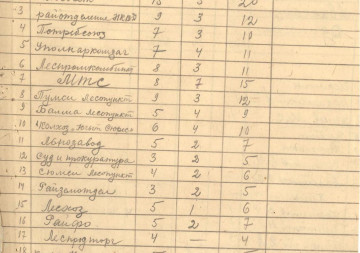 3 райотделение НКВД 9 3 12
4 Потребсоюз 7 3 10
5 Уполнаркомзаг 7 4 11
6 Леспромкомбинат 8 3 11
7 МТС 8 7 15
8 Пумси лесопункт 9 3 12
9 Балма лесопункт 5 4 9
10 Колхоз 6 4 10
11 Льнозавод 5 2 7
12 Суд и прокуратура 3 2 5
13 Сюмси лесопункт 4 2 6
14 Райзоотдел 3 2 5
15 Лесхоз 5 1 6
16 Райфо 5 2 7
17 Леспродторг 4 — 4